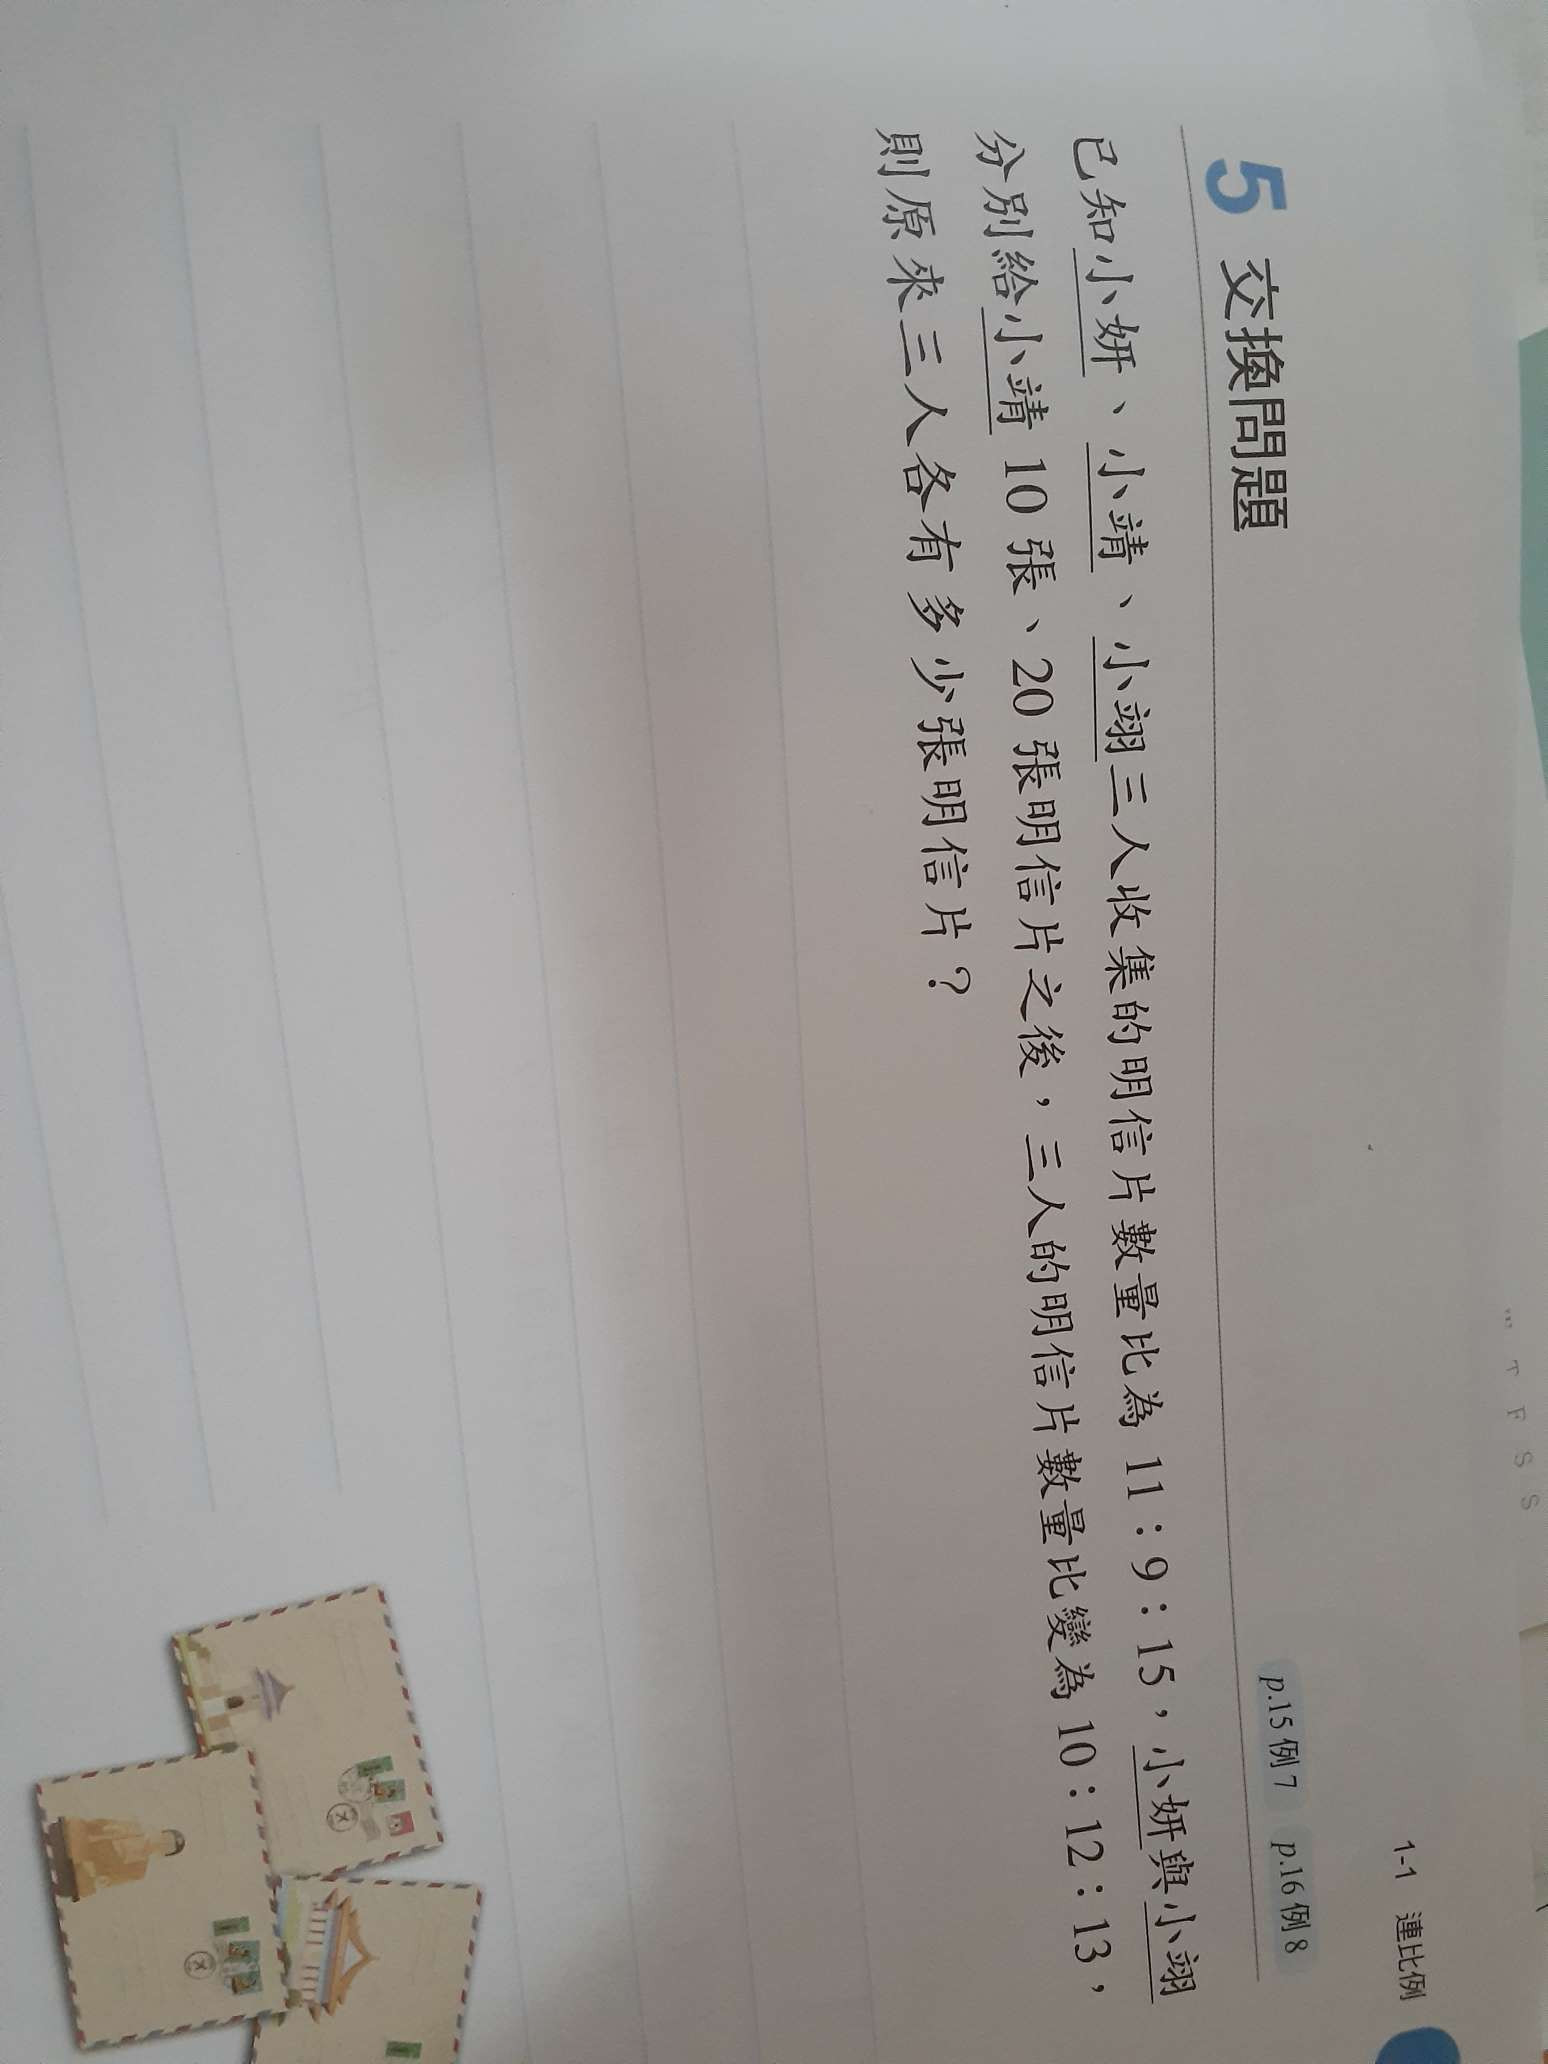 1-1 連比例
5 交換問題
p.15 例 7 p.16 例 8
已知小妍、小靖、小翊三人收集的明信片數量比為 11：9：15，小妍與小翊
分別給小靖 10 張、20 張明信片之後，三人的明信片數量比變為 10：12：13，
則原來三人各有多少張明信片？
T F S S